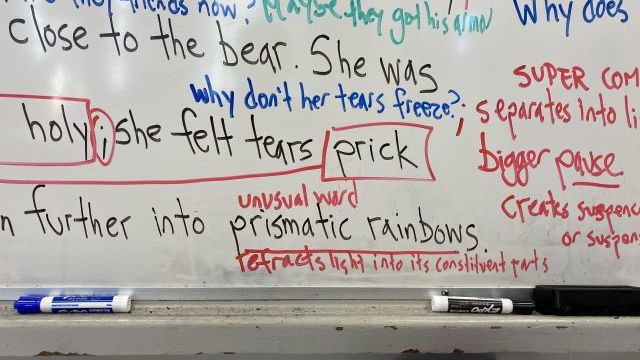 they friends now? Maybe they got his armor Why does
close to the bear. She was
SUPER COM
why don't her tears freeze?
; separates into li
holy; she felt tears prick
bigger pause
unusual word
creates suspenc
n further into prismatic rainbows.
or suspen
refracts light into its constituent parts
EXPO
EXPO